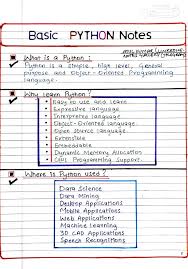 Basic PYTHON Notes
What is a Python :
Python is a simple, high level, General
purpose and Object-Oriented Programming
language.
Why learn Python?
Easy to use and Learn
Expressive Language
Interpreted Language
Object-Oriented Language
Open Source Language
Extensible
Embeddable
Dynamic Memory Allocation
GUI Programming Support.
Where is Python used?
Data Science
Data Mining
Desktop Applications
Mobile Applications
Web Applications
Machine Learning
3D CAD Applications
Speech Recognitions